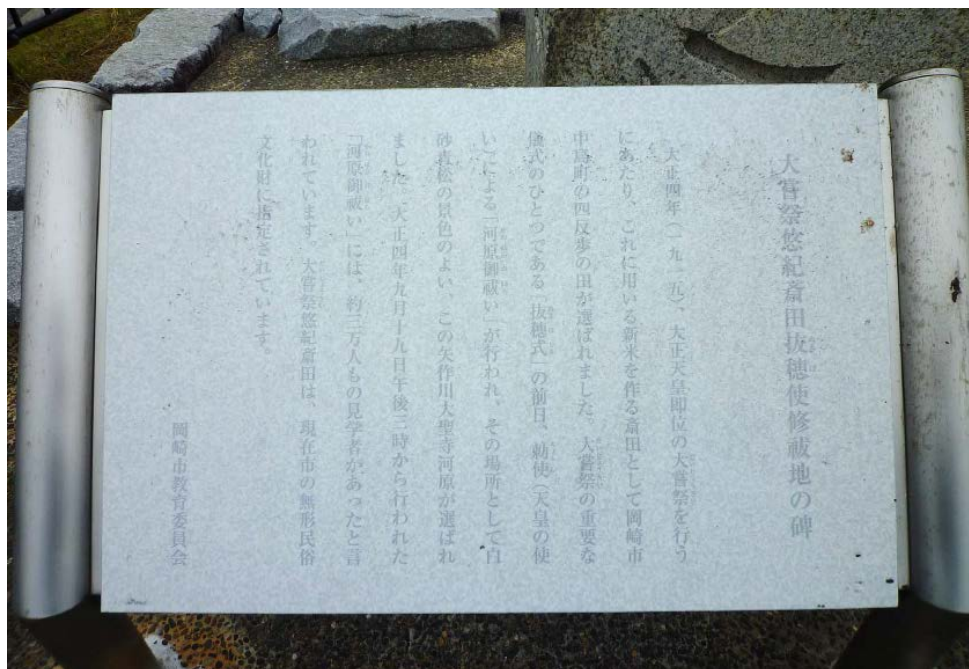 大嘗祭悠紀斎田抜穂使修祓地の碑
大正四年(一九一五)、大正天皇即位の大嘗祭を行う
にあたり、これに用いる新米を作る斎田として岡崎市
中島町の四反歩の田が選ばれました。大嘗祭の重要な
儀式のひとつである「抜穂式」の前日、勅使(天皇の使
い)による「河原御祓い」が行われ、その場所として白
砂青松の景色のよい、この矢作川大聖寺河原が選ばれ
ました。大正四年九月十九日午後三時から行われた
「河原御祓い」には、約三万人もの見学者があったと言
われています。大嘗祭悠紀斎田は、現在市の無形民俗
文化財に指定されています。
岡崎市教育委員会